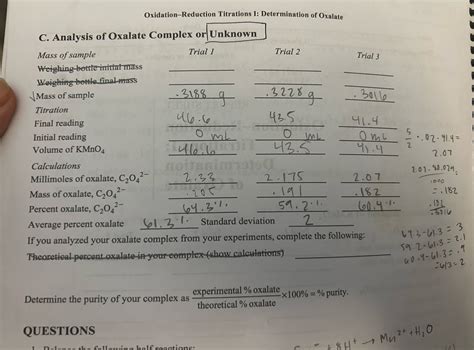 Oxidation–Reduction Titrations I: Determination of Oxalate
C. Analysis of Oxalate Complex or Unknown
Mass of sample Trial 1 Trial 2 Trial 3
Weighing bottle initial mass
Weighing bottle final mass
Mass of sample .3188 g .3228 g .3016
Titration
Final reading 46.6 43.5 41.4
Initial reading 0 mL 0 mL 0 mL
Volume of KMnO4 46.6 43.5 41.4
5/2 · .02 · 41.4 =
2.07
Calculations
Millimoles of oxalate, C2O4 2− 2.33 2.175 2.07
Mass of oxalate, C2O4 2− .205 .191 .182
Percent oxalate, C2O4 2− 64.3% 59.2% 60.4%
Average percent oxalate 61.3% Standard deviation 2
.182
.3016
If you analyzed your oxalate complex from your experiments, complete the following:
Theoretical percent oxalate in your complex (show calculations)
64.3-61.3 = 3
59.2-61.3 = 2.1
60.4-61.3 = .9
=6/3=2
Determine the purity of your complex as experimental % oxalate / theoretical % oxalate ×100% = % purity.
QUESTIONS
1. Balance the following half reactions:
+8H+ → Mn2+ + H2O